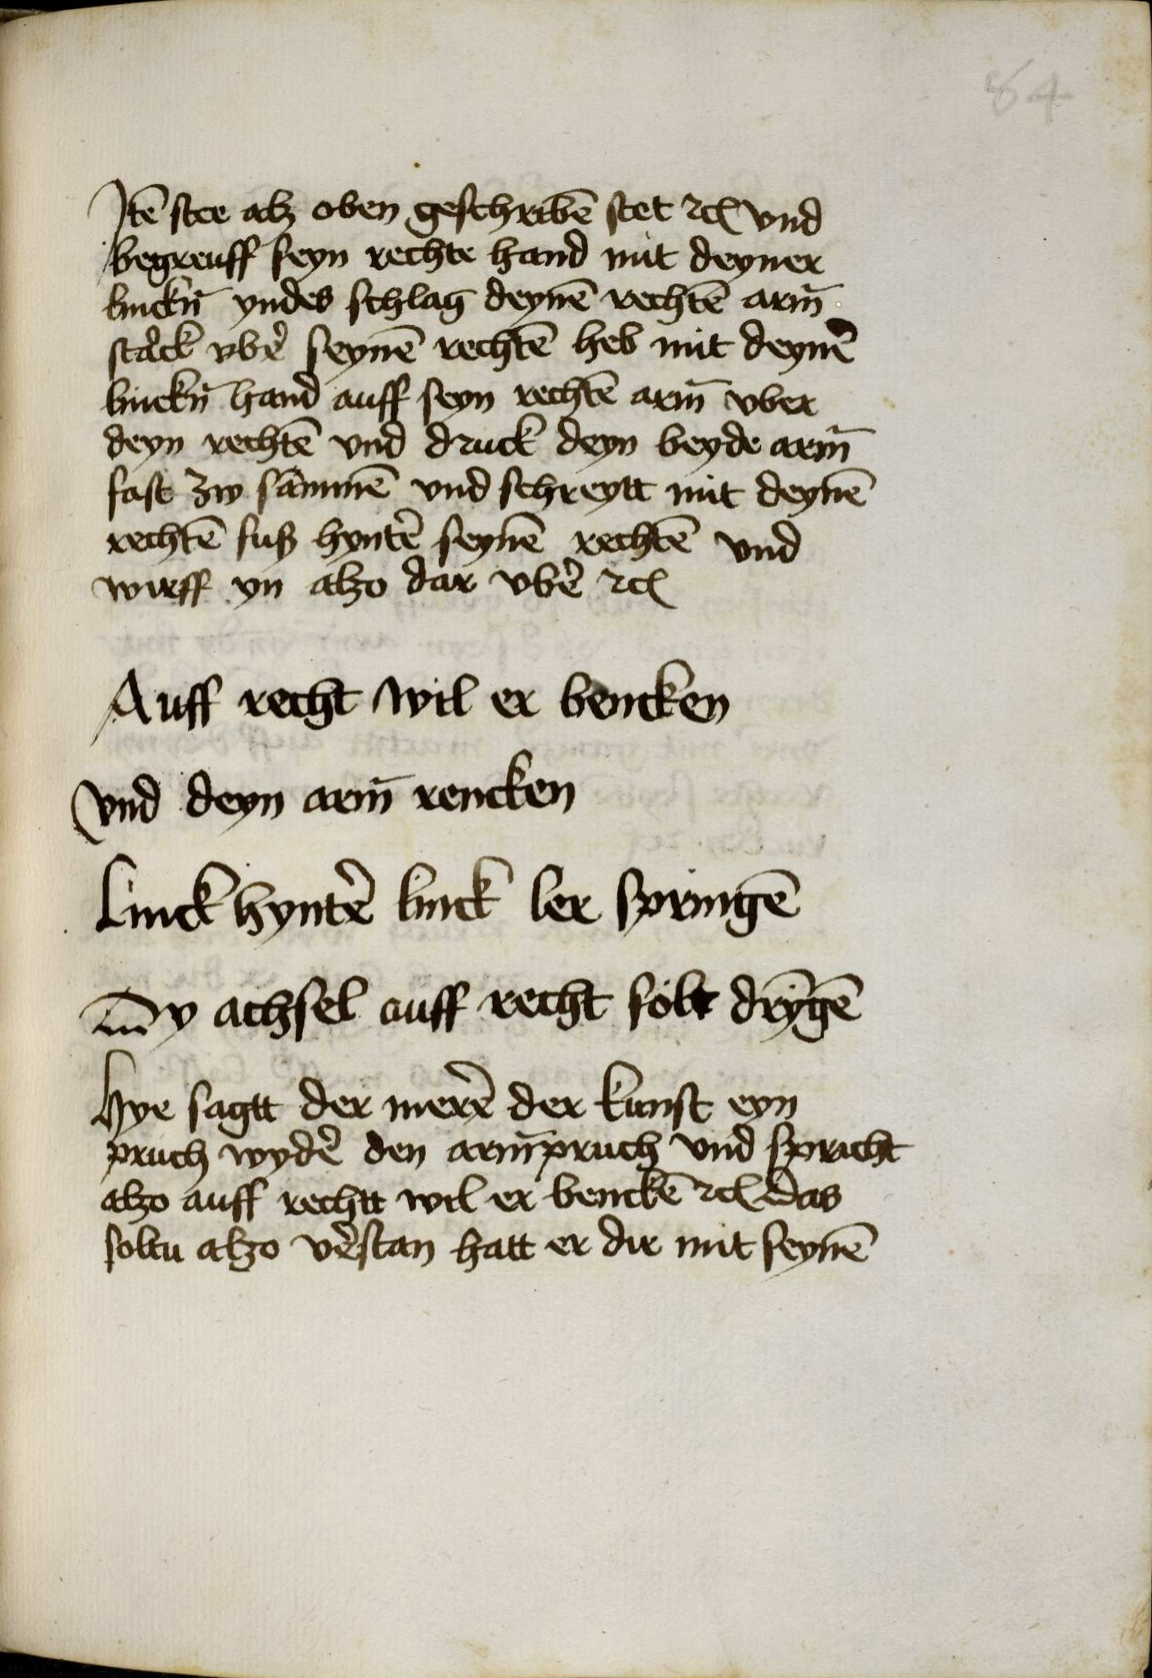 84
Itē stee alz oben geschribē stet ꝛc̃ vnd
begreuff seyn rechte hand mit deyner
linckn̄ yndes schlag deynē rechtē arm̄
starck vber̄ seynē rechtē heb mit deynē
linckn̄ hand auff seyn rechtē arm̄ vber
deyn rechtē vnd druck deyn beyde arm̄
fast zw sāmmē vnd schreytt mit deynē
rechtē fuß hynter̄ seynē rechtē vnd
wirff yn alzo dar vber̄ ꝛc̃
Auff recht wil er bencken
vnd deyn arm̄ rencken
Linck hynter̄ linck ler springē
Dy achsel auff recht solt drȳgē
Hye sagtt der merer̄ der kunst eyn
pruch wyder̄ den arm̄pruch vnd spricht
alzo auff rechtt wil er benckē ꝛc̃ das
soltu alzo ver̄stan hatt er dir mit seynē